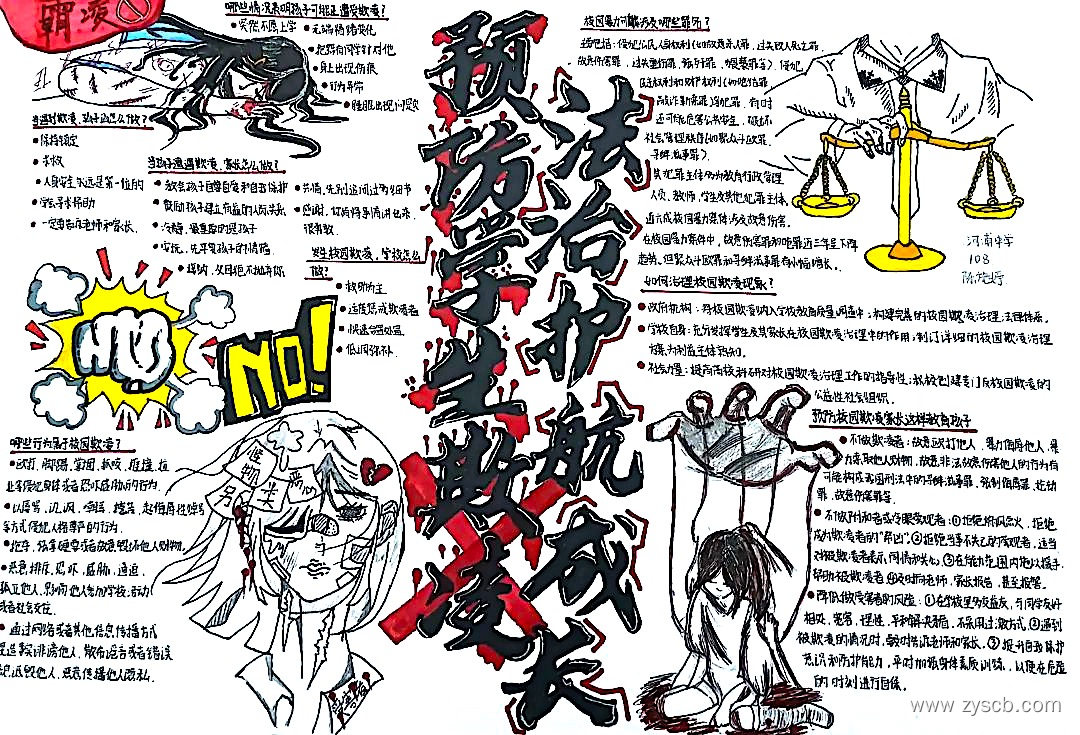 霸凌
哪些情况表明孩子可能正遭受欺凌?
突然不愿上学
无端情绪变化
把药向同学针对他
身上出现伤痕
行为异常
睡眠出现问题
当遇到欺凌,孩子应怎么做?
保持镇定
求救
人身安全永远是第一位的
学会寻求帮助
一定要告诉老师和家长.
当孩子遭遇欺凌,家长怎么做?
教会孩子自尊自爱和自我保护
鼓励孩子建立有益的人际关系
冷静,最重要的是孩子
安抚,先平复孩子的情绪
共情,先别追问过多细节
感谢,你的将事情讲出来,
很有救.
发生校园欺凌,学校怎么
做?
救助为主
适度惩戒欺凌者
快速合理处置
NO!
哪些行为属于校园欺凌?
殴打、脚踢、掌掴、抓咬、推撞、拉
扯等侵犯身体或者恐吓威胁他人的行为.
以辱骂、讥讽、嘲弄、挖苦、起侮辱性绰号
等方式侵犯人格尊严的行为.
抢夺、强拿硬要或者故意毁坏他人财物.
恶意排斥、孤立他人,影响他人参加学校活动
或者社会交往.
通过网络或者其他信息传播方式
捏造事实诽谤他人、散布谣言或者错误
信息诋毁他人、恶意传播他人隐私.
怪物
恶心
预防学生欺凌
法治护航成长
校园暴力可能涉及哪些罪名?
主要包括:侵犯公民人身权利(如故意杀人罪,过失致人死亡罪,
故意伤害罪,过失重伤罪,强奸罪,猥亵罪等),侵犯
民主权利和财产权利(如抢劫罪
或敲诈勒索罪)等犯罪,有时
还可能危害公共安全,破坏
社会管理秩序(如聚众斗殴罪、
寻衅滋事罪).
其犯罪主体分为教育行政管理
人员、教师、学生及其他犯罪主体,
近六成校园暴力案件涉及故意伤害.
在校园暴力案件中,故意伤害罪和抢劫罪近三年呈下降
趋势,但聚众斗殴罪和寻衅滋事罪有小幅增长.
河南中学
108
如何治理校园欺凌现象?
政府机构:将校园欺凌纳入学校教育质量调查中;构建完善的校园欺凌治理法律体系.
学校自身:充分发挥学生及其家长在校园欺凌治理中的作用;制订详细的校园欺凌治理
方案,为利益主体熟知.
社会力量:提高高校科研对校园欺凌治理工作的指导性;积极创建专门反校园欺凌的
公益性社会组织.
预防校园欺凌家长这样教育孩子
不做欺凌者:故意殴打他人、暴力侮辱他人、暴
力索取他人财物、故意非法故意伤害他人的行为有
可能构成我国刑法中的寻衅滋事罪、强制侮辱罪、抢劫
罪、故意伤害罪等.
不做附和者或冷眼旁观者:①拒绝煽风点火,拒绝
成为欺凌者的"帮凶".②拒绝当事不关己的旁观者,适当
对被欺凌者表示同情和关心;③在能力范围内抱以援手,
帮助被欺凌者④及时向老师,家长报告,甚至报警.
降低做受害者的风险:①在学校里多交益友,与同学友好
相处,宽容、理性、平和解决矛盾,不采用过激方式②遇到
被欺凌的情况时,要及时告诉老师和家长.③提升自我保护
意识和防护能力,平时加强身体素质训练,以便在危险
的时刻进行自保.
www.zyscb.com